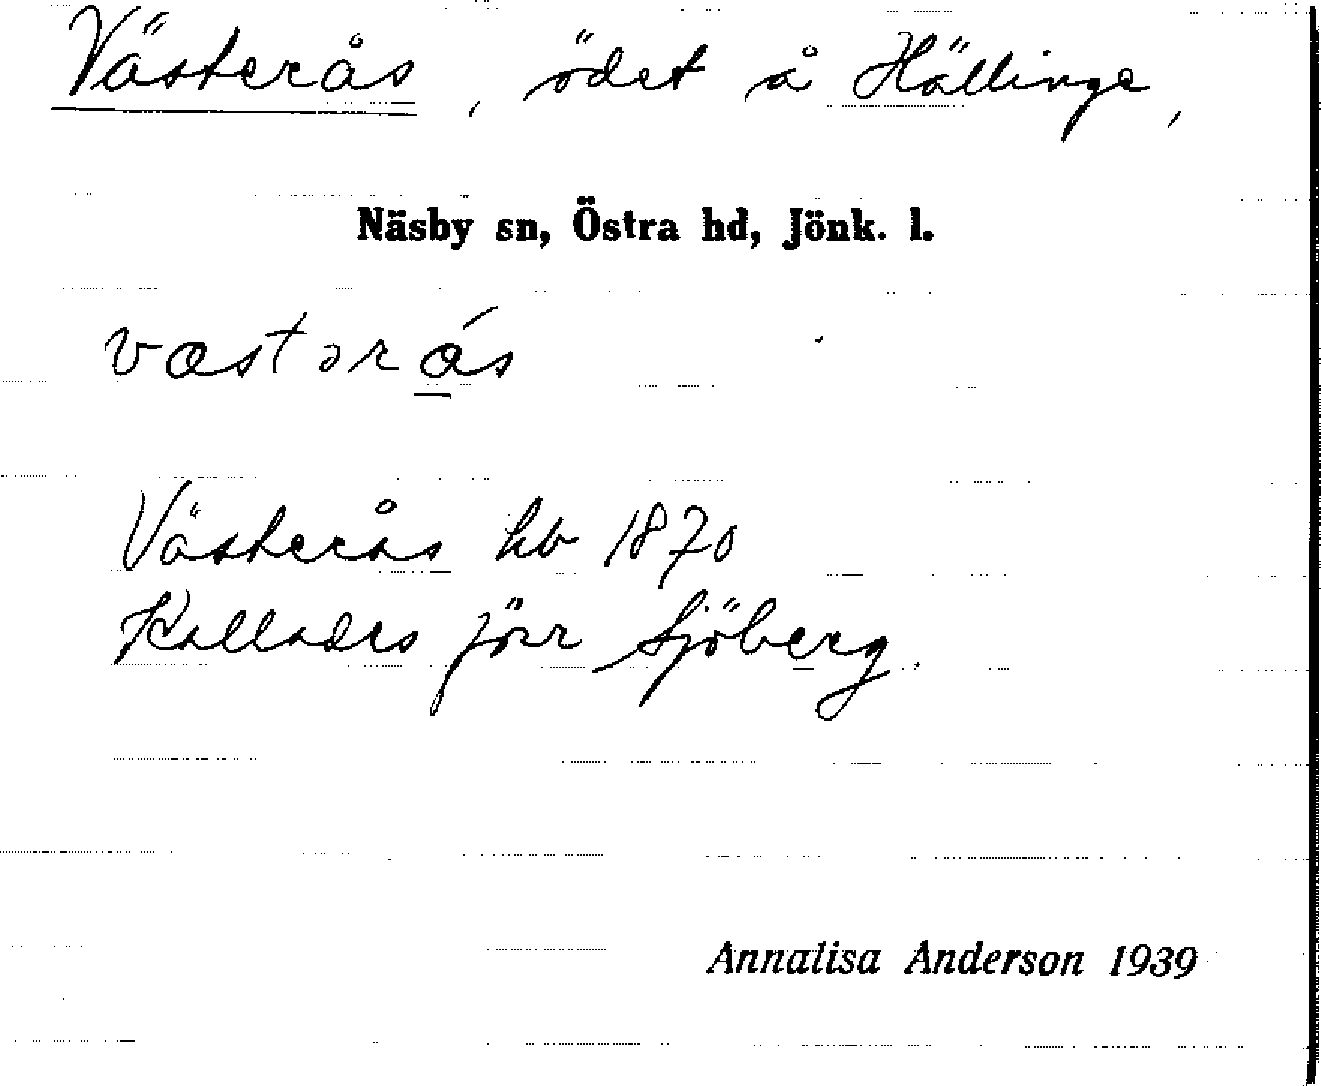 Västerås, ödet å Hällinge,
Näsby sn, Östra hd, Jönk. l.
væstərǻs
Västerås hb 1870
Kallades förr Sjöberg.
Annalisa Anderson 1939